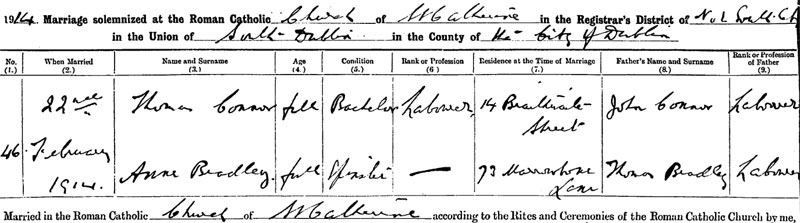 1914. Marriage solemnized at the Roman Catholic Church of St Catherine in the Registrar's District of No 1 South City
in the Union of South Dublin in the County of the City of Dublin
No. When Married Name and Surname Age Condition Rank or Profession Residence at the Time of Marriage Father's Name and Surname Rank or Profession of Father
(1.) (2.) (3.) (4.) (5.) (6.) (7.) (8.) (9.)
22nd Thomas Connor full Bachelor Labourer 14 Braithwaite Street John Connor Labourer
46. February
1914. Anne Bradley. full Spinster — 73 Marrowbone Lane Thomas Bradley Labourer
Married in the Roman Catholic Church of St Catherine according to the Rites and Ceremonies of the Roman Catholic Church by me,